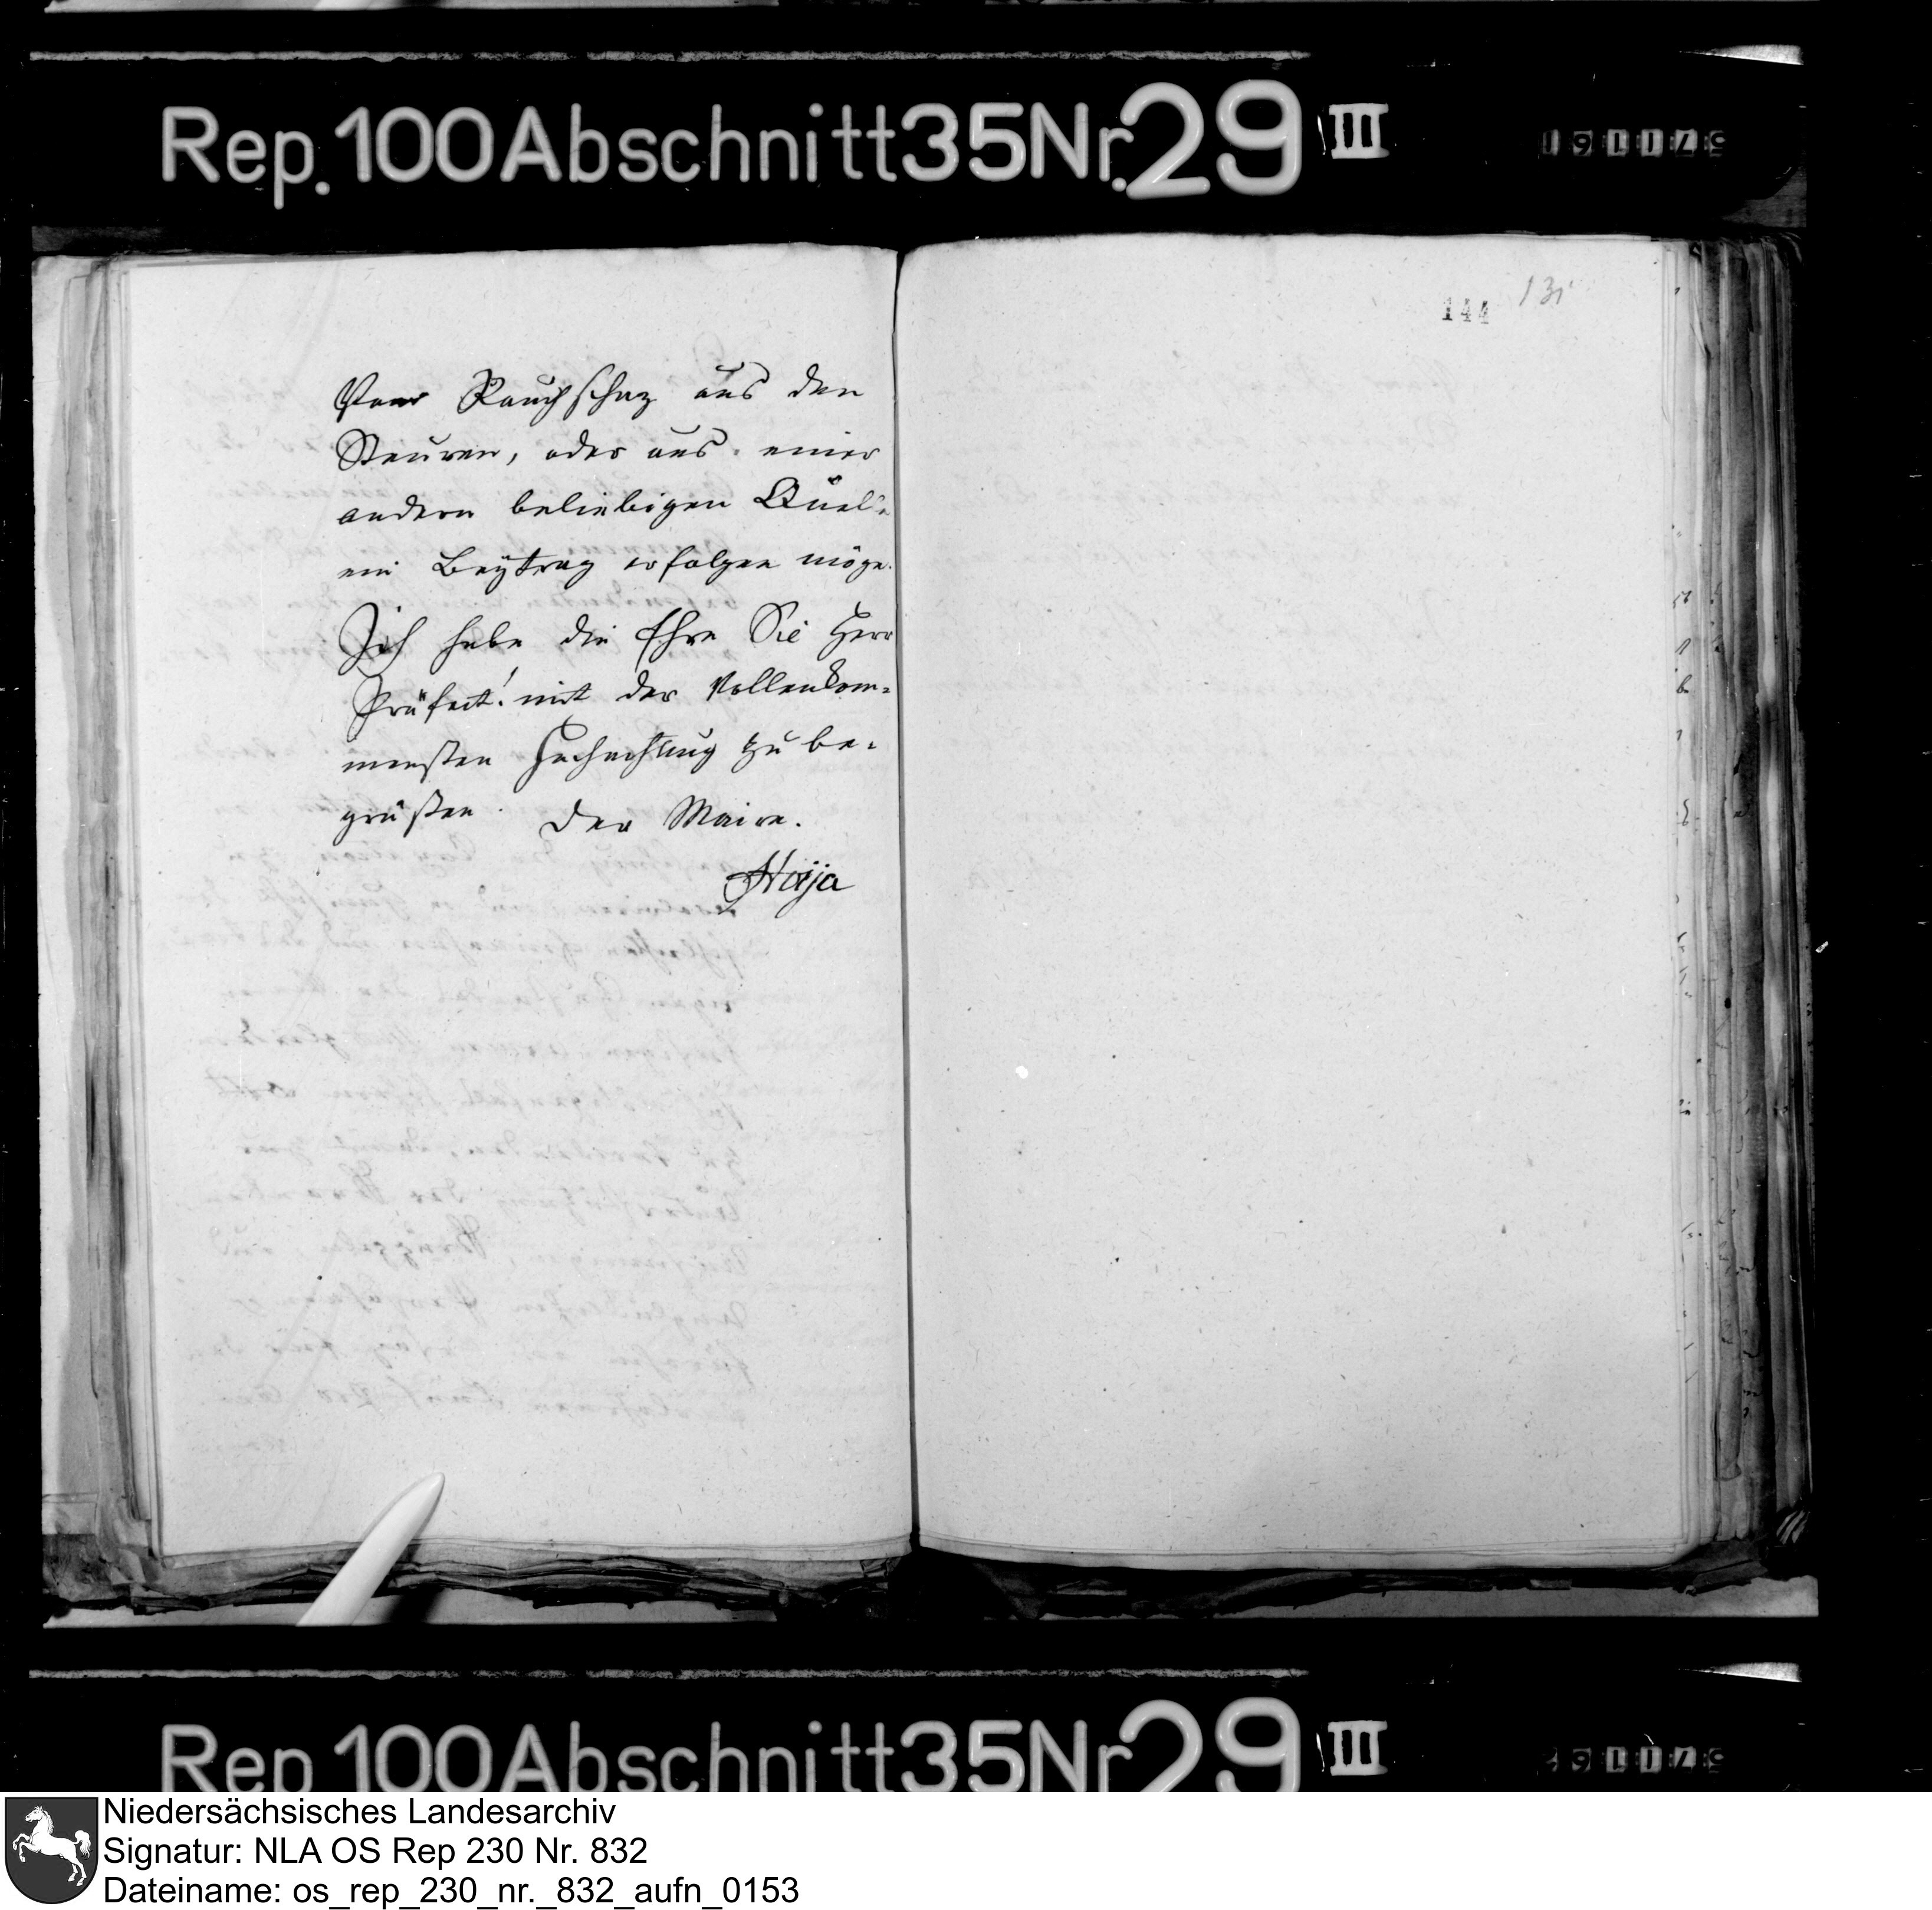 Rep. 100 Abschnitt 35 Nr. 29 III
144 131
Vom Rauchschaz aus den
Steuren, oder aus einer
andern beliebigen Quelle
ein Beÿtrag erfolgen möge.
Ich habe die Ehre Sie Herr
Präfect! mit der Vollenkom-
mensten Hochachtung zu be-
grüßen. Der Maire.
Rep 100 Abschnitt 35 Nr 29 III
Niedersächsisches Landesarchiv
Signatur: NLA OS Rep 230 Nr. 832
Dateiname: os_rep_230_nr._832_aufn_0153